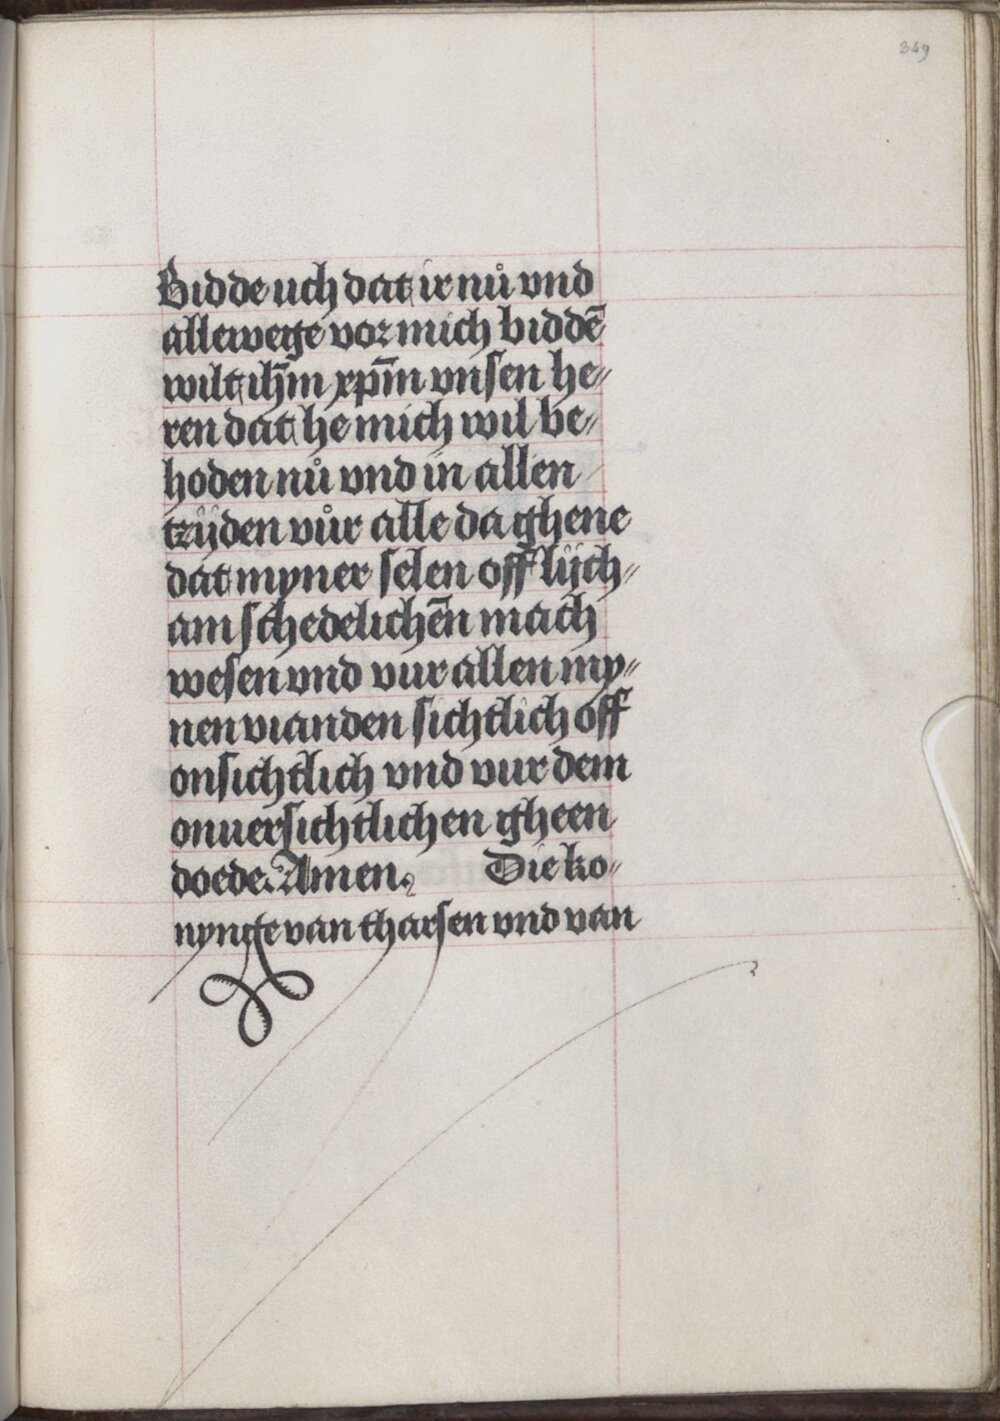 349
Bidde uch dat ir nů vnd
allewege vor mich biddē
wilt ih̄m xp̄m vnsen he⸗
ren dat he mich wil be⸗
hoden nů vnd in allen
tzijden vůr alle da ghene
dat myner selen off lijch⸗
am schedelichēn mach
wesen vnd vur allen my⸗
nen vianden sichtlich off
onsichtlich vnd vur dem
onuersichtlichen gheen
doede. Amen. Die ko⸗
nynge van tharsen vnd van